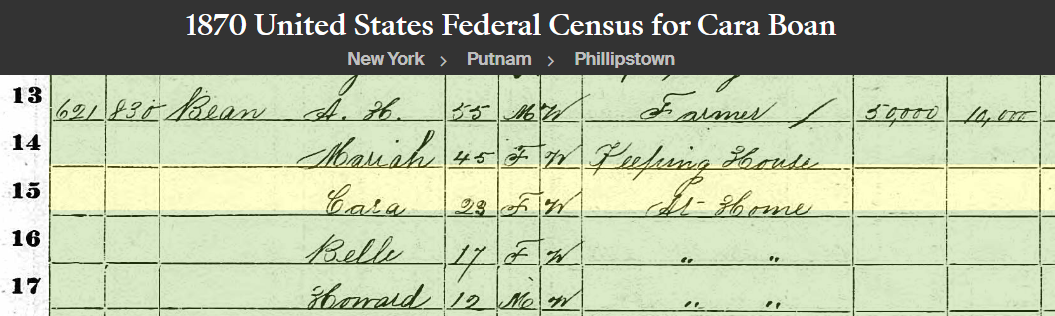 1870 United States Federal Census for Cara Boan
New York > Putnam > Phillipstown
13 621 830 Bean A. H. 55 M W Farmer / 50,000 10,000
14 Mariah 45 F W Keeping House
15 Cara 23 F W At Home
16 Belle 17 F W " "
17 Howard 12 M W " "